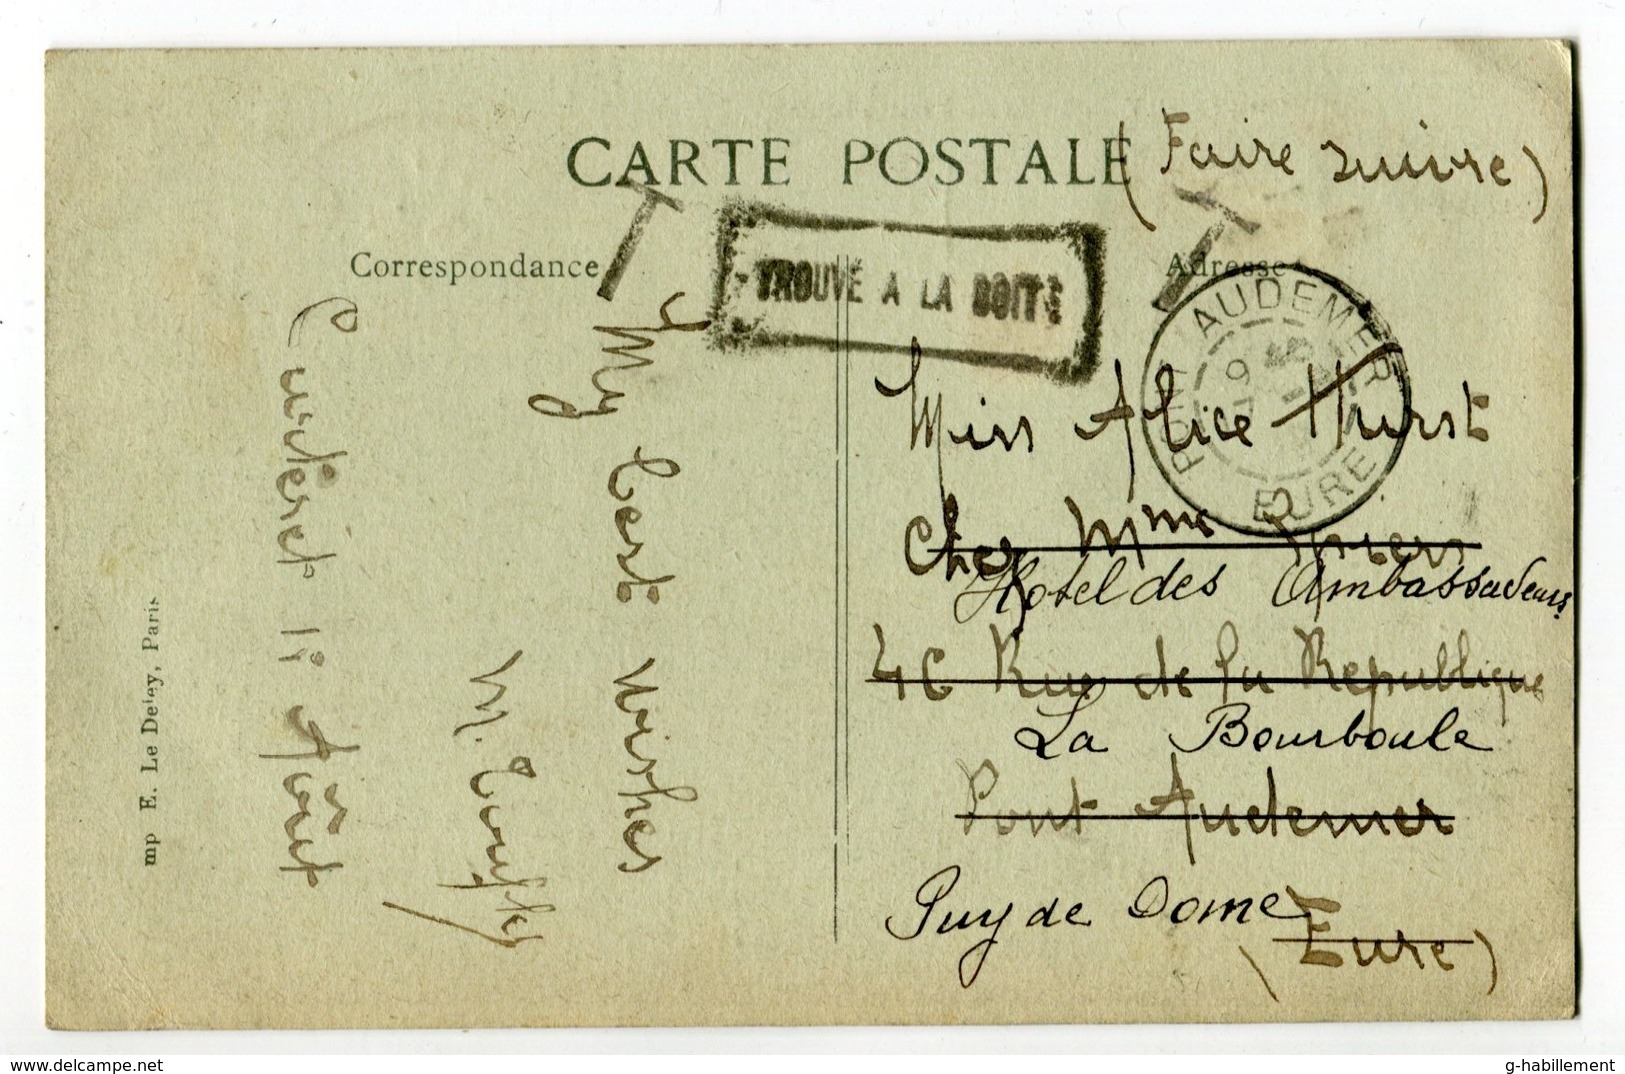 CARTE POSTALE
(Faire suivre)
Correspondance
Adresse
T
T
TROUVÉ A LA BOITE
PONT AUDEMER
EURE
My best wishes
Cauteret 1er Août
Miss Alice Hurst
Chez Mme
Hotel des Ambassadeurs
46 Rue de la Republique
La Bourboule
Pont Audemer
Puy de Dome
(Eure)
mp E. Le Deley, Paris
delcampe.net
g-habillement